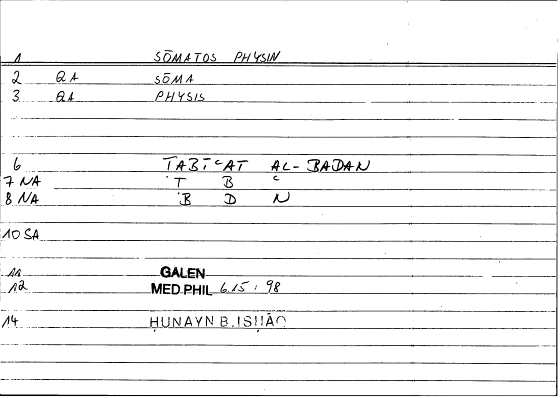 1 SŌMATOS PHYSIN
2 QA SŌMA
3 QA PHYSIS
6 ṬABĪʿAT AL-BADAN
7 NA Ṭ B ʿ
8 NA B D N
10 SA
11 GALEN
12 MED.PHIL 6.15 : 98
14 ḤUNAYN B.ISḤĀQ